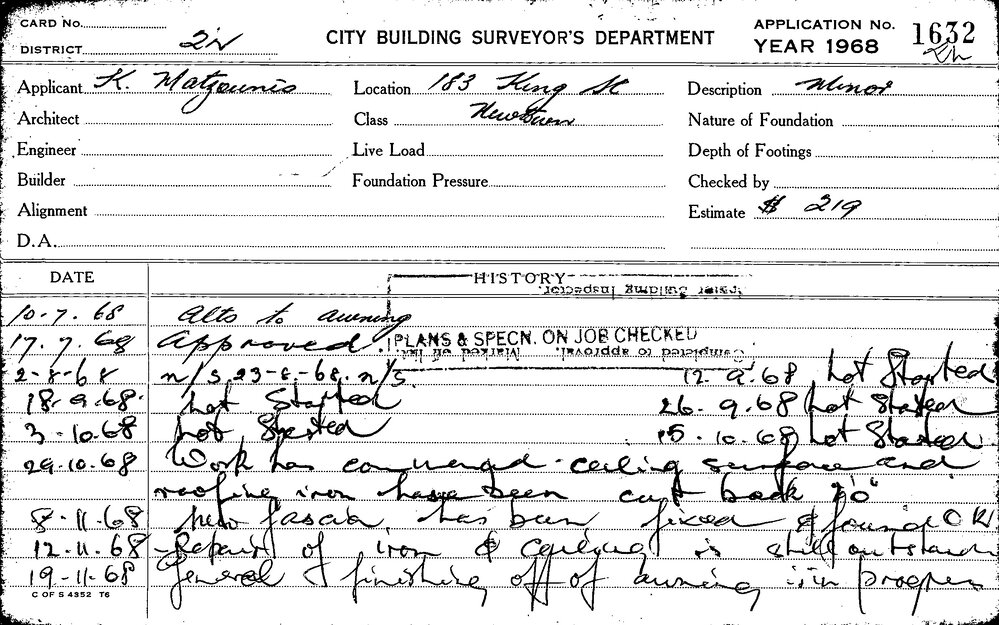 CARD No.
DISTRICT 2N
CITY BUILDING SURVEYOR'S DEPARTMENT
APPLICATION No. 1632
YEAR 1968
Applicant K. Matzounis Location 183 King St Description Minor
Architect Class Newtown Nature of Foundation
Engineer Live Load Depth of Footings
Builder Foundation Pressure Checked by
Alignment Estimate $ 219
D.A.
DATE HISTORY
Building Inspector.
10.7.68 Alts to awning
17.7.68 Approved. PLANS & SPECN. ON JOB CHECKED
Completed to approval. Marked off list.
2-8-68 n/s 23-8-68. n/s. 12.9.68 Not Started
18.9.68. Not Started 26.9.68 Not Started
3.10.68 Not Started 15.10.68 Not Started
29.10.68 Work has commenced - ceiling surface and
roofing iron have been cut back
8-11-68 New fascia has been fixed & found OK
12.11.68 Repair of iron & ceiling is still outstanding
19-11-68 General finishing off of awning is in progress
C OF S 4352 T6